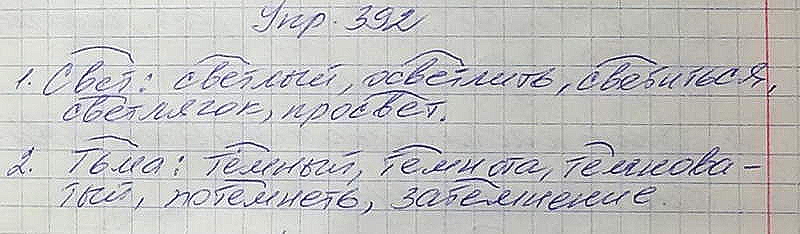 Упр. 392
1. Свет: светлый, осветлить, светиться,
светлячок, просвет.
2. Тьма: тёмный, темнота, темнова-
тый, потемнеть, затемнение.